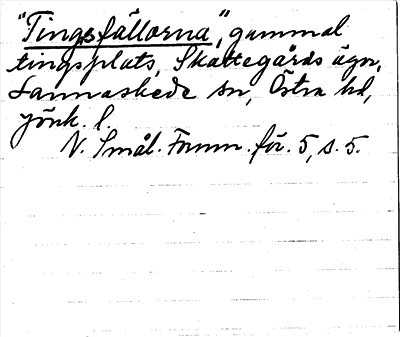 "Tingsfållorna", gammal
tingsplats, Skattegårds ägor,
Lannaskede sn, Östra hd,
Jönk. l.
N. Smål. Fornm. för. 5, s. 5.